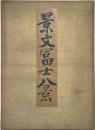 景文富士八景